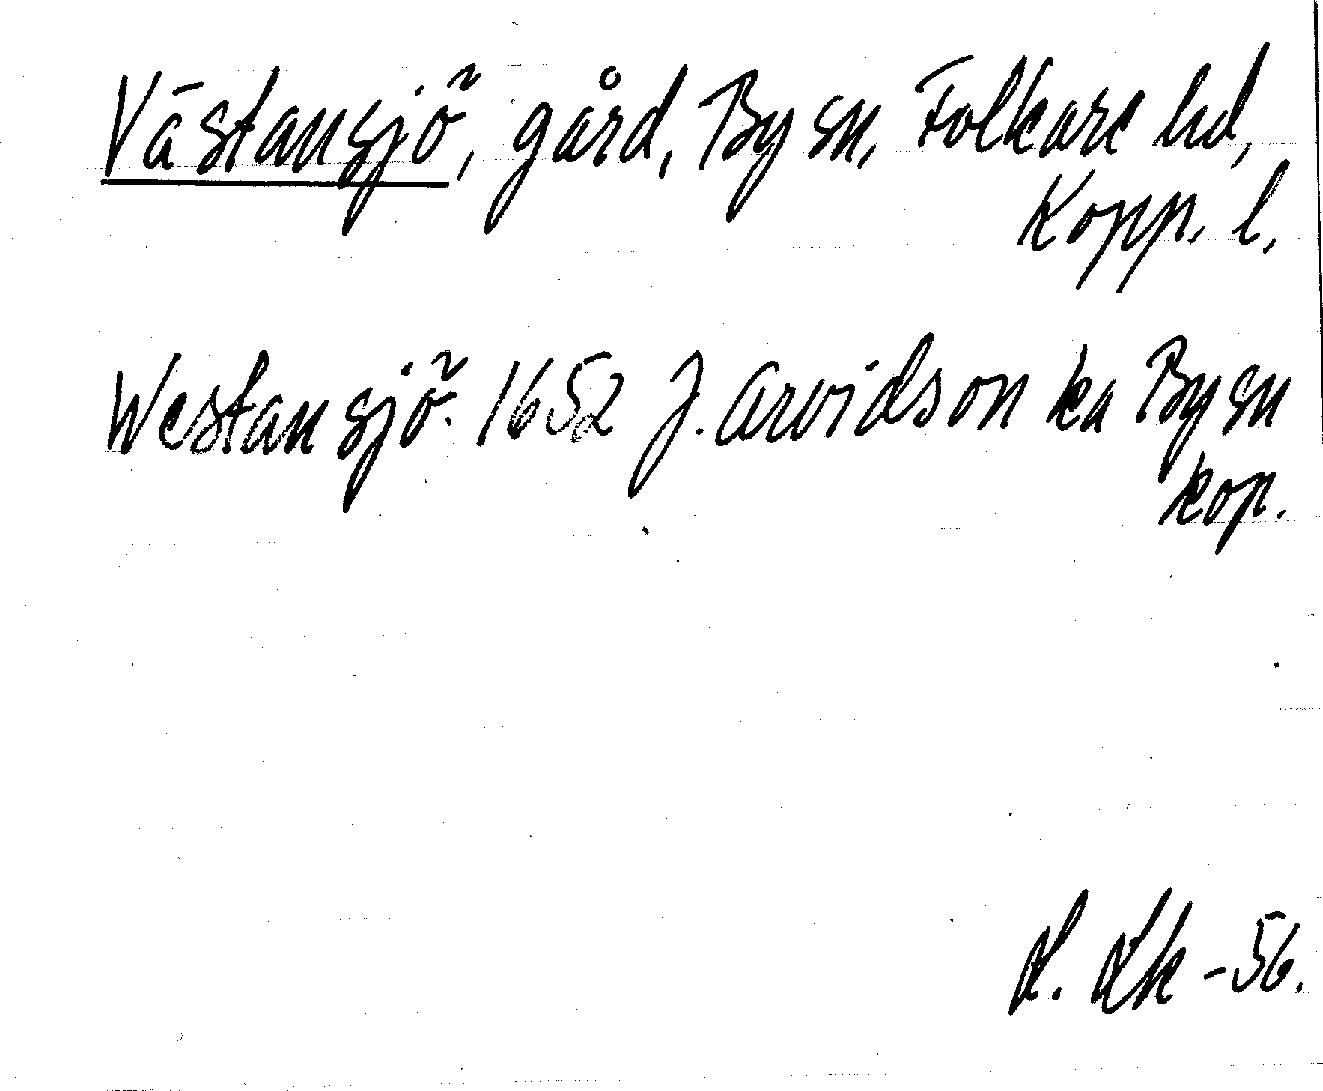 Västansjö, gård, By sn, Folkare hd,
Kopp. l.
Westansjö. 1652 J. Arvidson ka By sn
kop.
L. Lk -56.